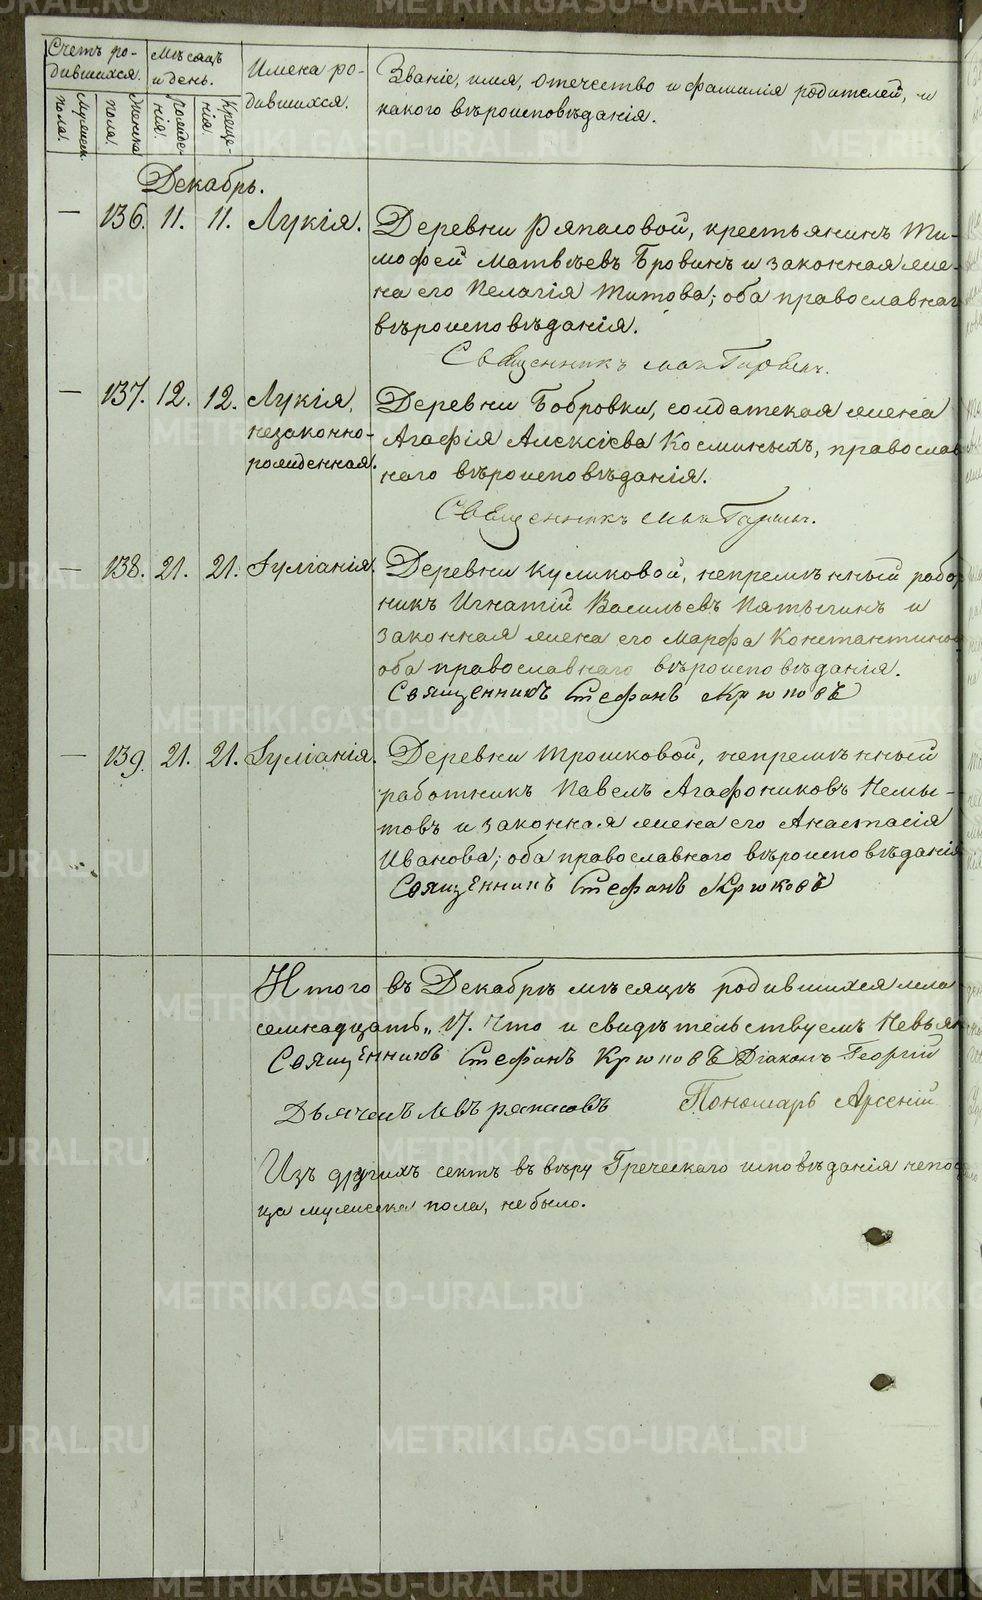 Счетъ ро-
дившихся.
Мѣсяцъ
и день.
Имена ро-
дившихся.
Званіе, имя, отечество и фамилія родителей, и
какого вѣроисповѣданія.
Мужеск.
пола.
Женска
пола.
Рожде-
нія.
Креще-
нія.
Декабрь.
— 136. 11. 11. Лукія.
Деревни Ряпасовой, крестьянинъ Ти-
мофей Матвѣевъ Бровинъ и законная же-
на его Пелагія Титова; оба православнаг
вѣроисповѣданія.
Священникъ
— 137. 12. 12. Лукія,
незаконно-
рожденная.
Деревни Бобровки, солдатская жена
Агафія Алексіева Косминыхъ, православ
наго вѣроисповѣданія.
Священникъ
— 138. 21. 21. Іуліанія.
Деревни Куликовой, непремѣнный работ
никъ Игнатій Васильевъ Пятыгинъ и
законная жена его Марфа Константинов
оба православнаго вѣроисповѣданія.
Священникъ Стефанъ Крюковъ
— 139. 21. 21. Іуліанія.
Деревни Трошковой, непремѣнный
работникъ Павелъ Агафониковъ Немы-
товъ и законная жена его Анастасія
Иванова; оба православнаго вѣроисповѣданія
Священникъ Стефанъ Крюковъ
Итого въ Декабрѣ мѣсяцѣ родившихся
семнадцать „ 17. Что и свидѣтельствуемъ Невьян
Священникъ Стефанъ Крюковъ Діаконъ Георгій
Дьячекъ Левъ Ряпасовъ Пономарь Арсеній
Изъ другихъ сектъ въ вѣру Греческаго исповѣданія
мужеска пола, не было.
METRIKI.GASO-URAL.RU